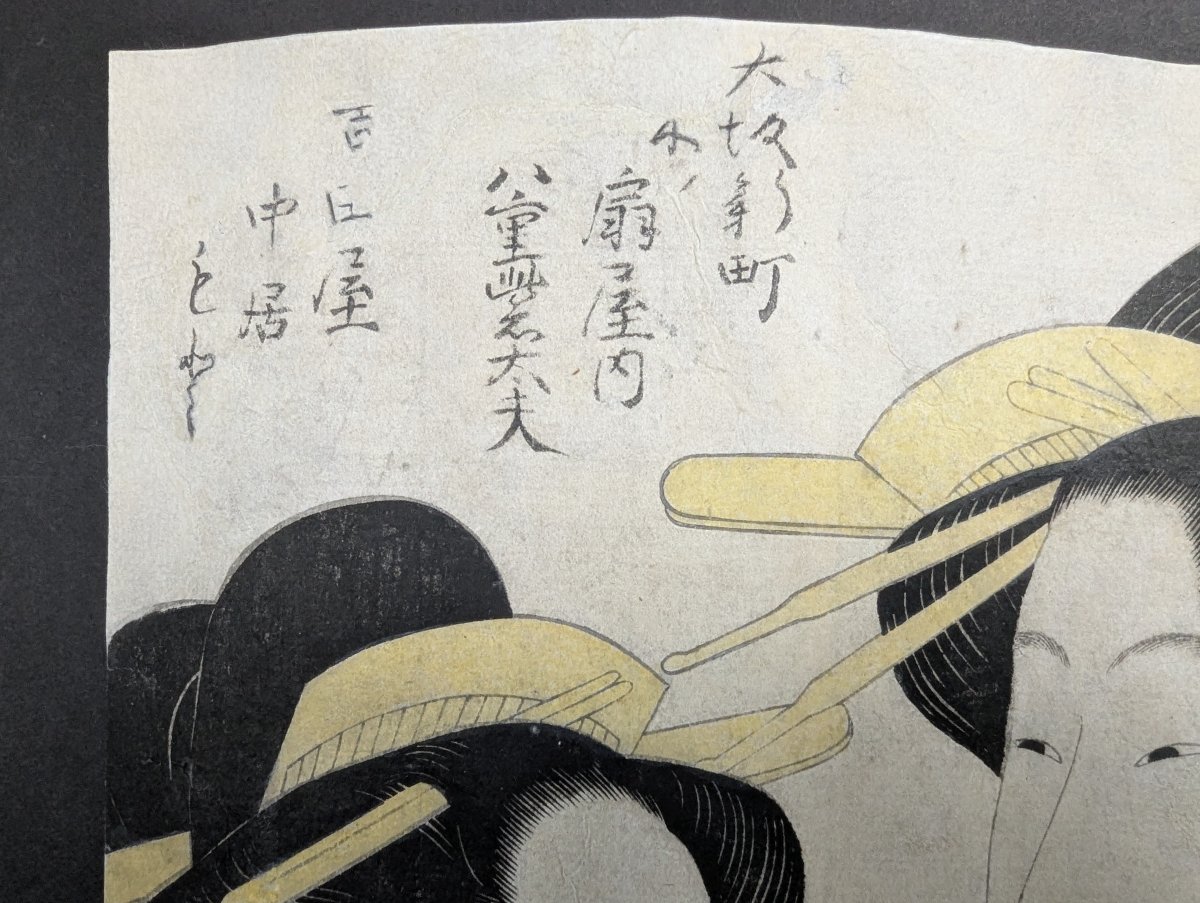 大坂新町
小ノ
扇屋内
八重紫太夫
吉田屋
中居